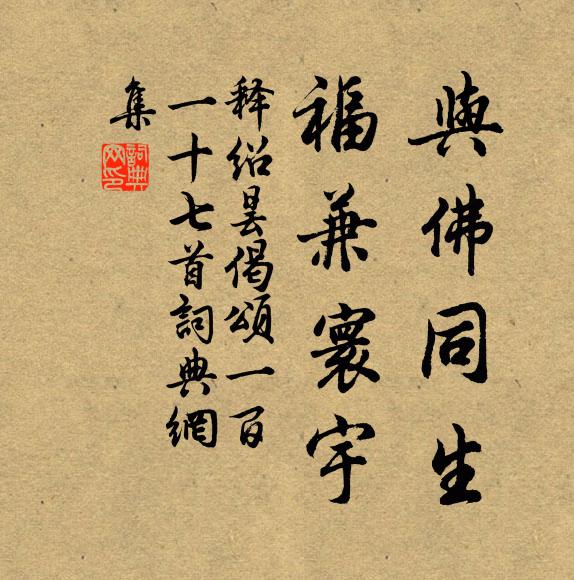 與佛同生
福兼寰宇
释紹曇偈頌一百
一十七首詞典網
集
詞典
网印